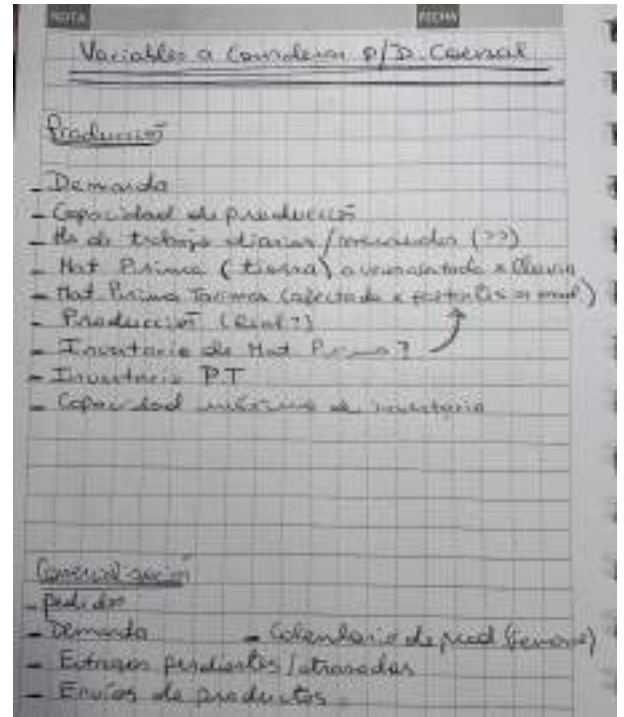 NOTA FECHA
Variables a Considerar p/D. Causal
Producción
- Demanda
- Capacidad de producción
- Hs de trabajo diarias / (??)
- Mat Prima (tierra) x lluvia
- Mat Prima Tarimas (afectada x
- Producción (Real?)
- Inventario de Mat Prima?
- Inventario P.T
- Capacidad máxima de inventario
Comercialización
- Pedidos
- Demanda - Calendario de prod
- Entregas pendientes/atrasadas
- Envíos de productos